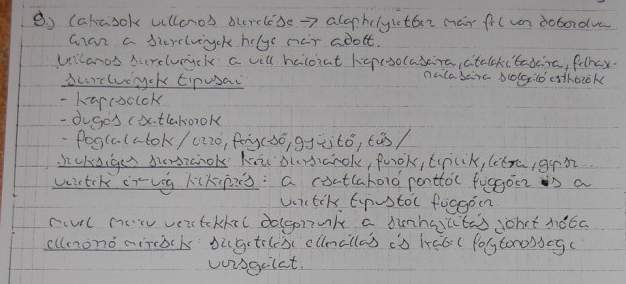 9.) Lakások villamos szerelése → alaphelyzetben már fel van dobozolva
azaz a szerelvények helye már adott.
Villamos szerelvények a vill hálózat kapcsolására, átalakítására, felhasz-
nálására szolgáló eszközök
Szerelvények típusai
- kapcsolók
- dugós csatlakozók
- foglalatok / izzó, fénycső, gyújtó, tüs /
szükséges szerszámok kézi szerszámok, fúrók, tiplik, létra, gipsz...
vezeték ér vég kiképzés: a csatlakozó ponttól függően és a
vezeték típustól függően
mivel merev vezetékkel dolgozunk a szemhajlítás jöhet szóba
ellenőrző mérések szigetelési ellenállás és vezető folytonosság
vizsgálat.